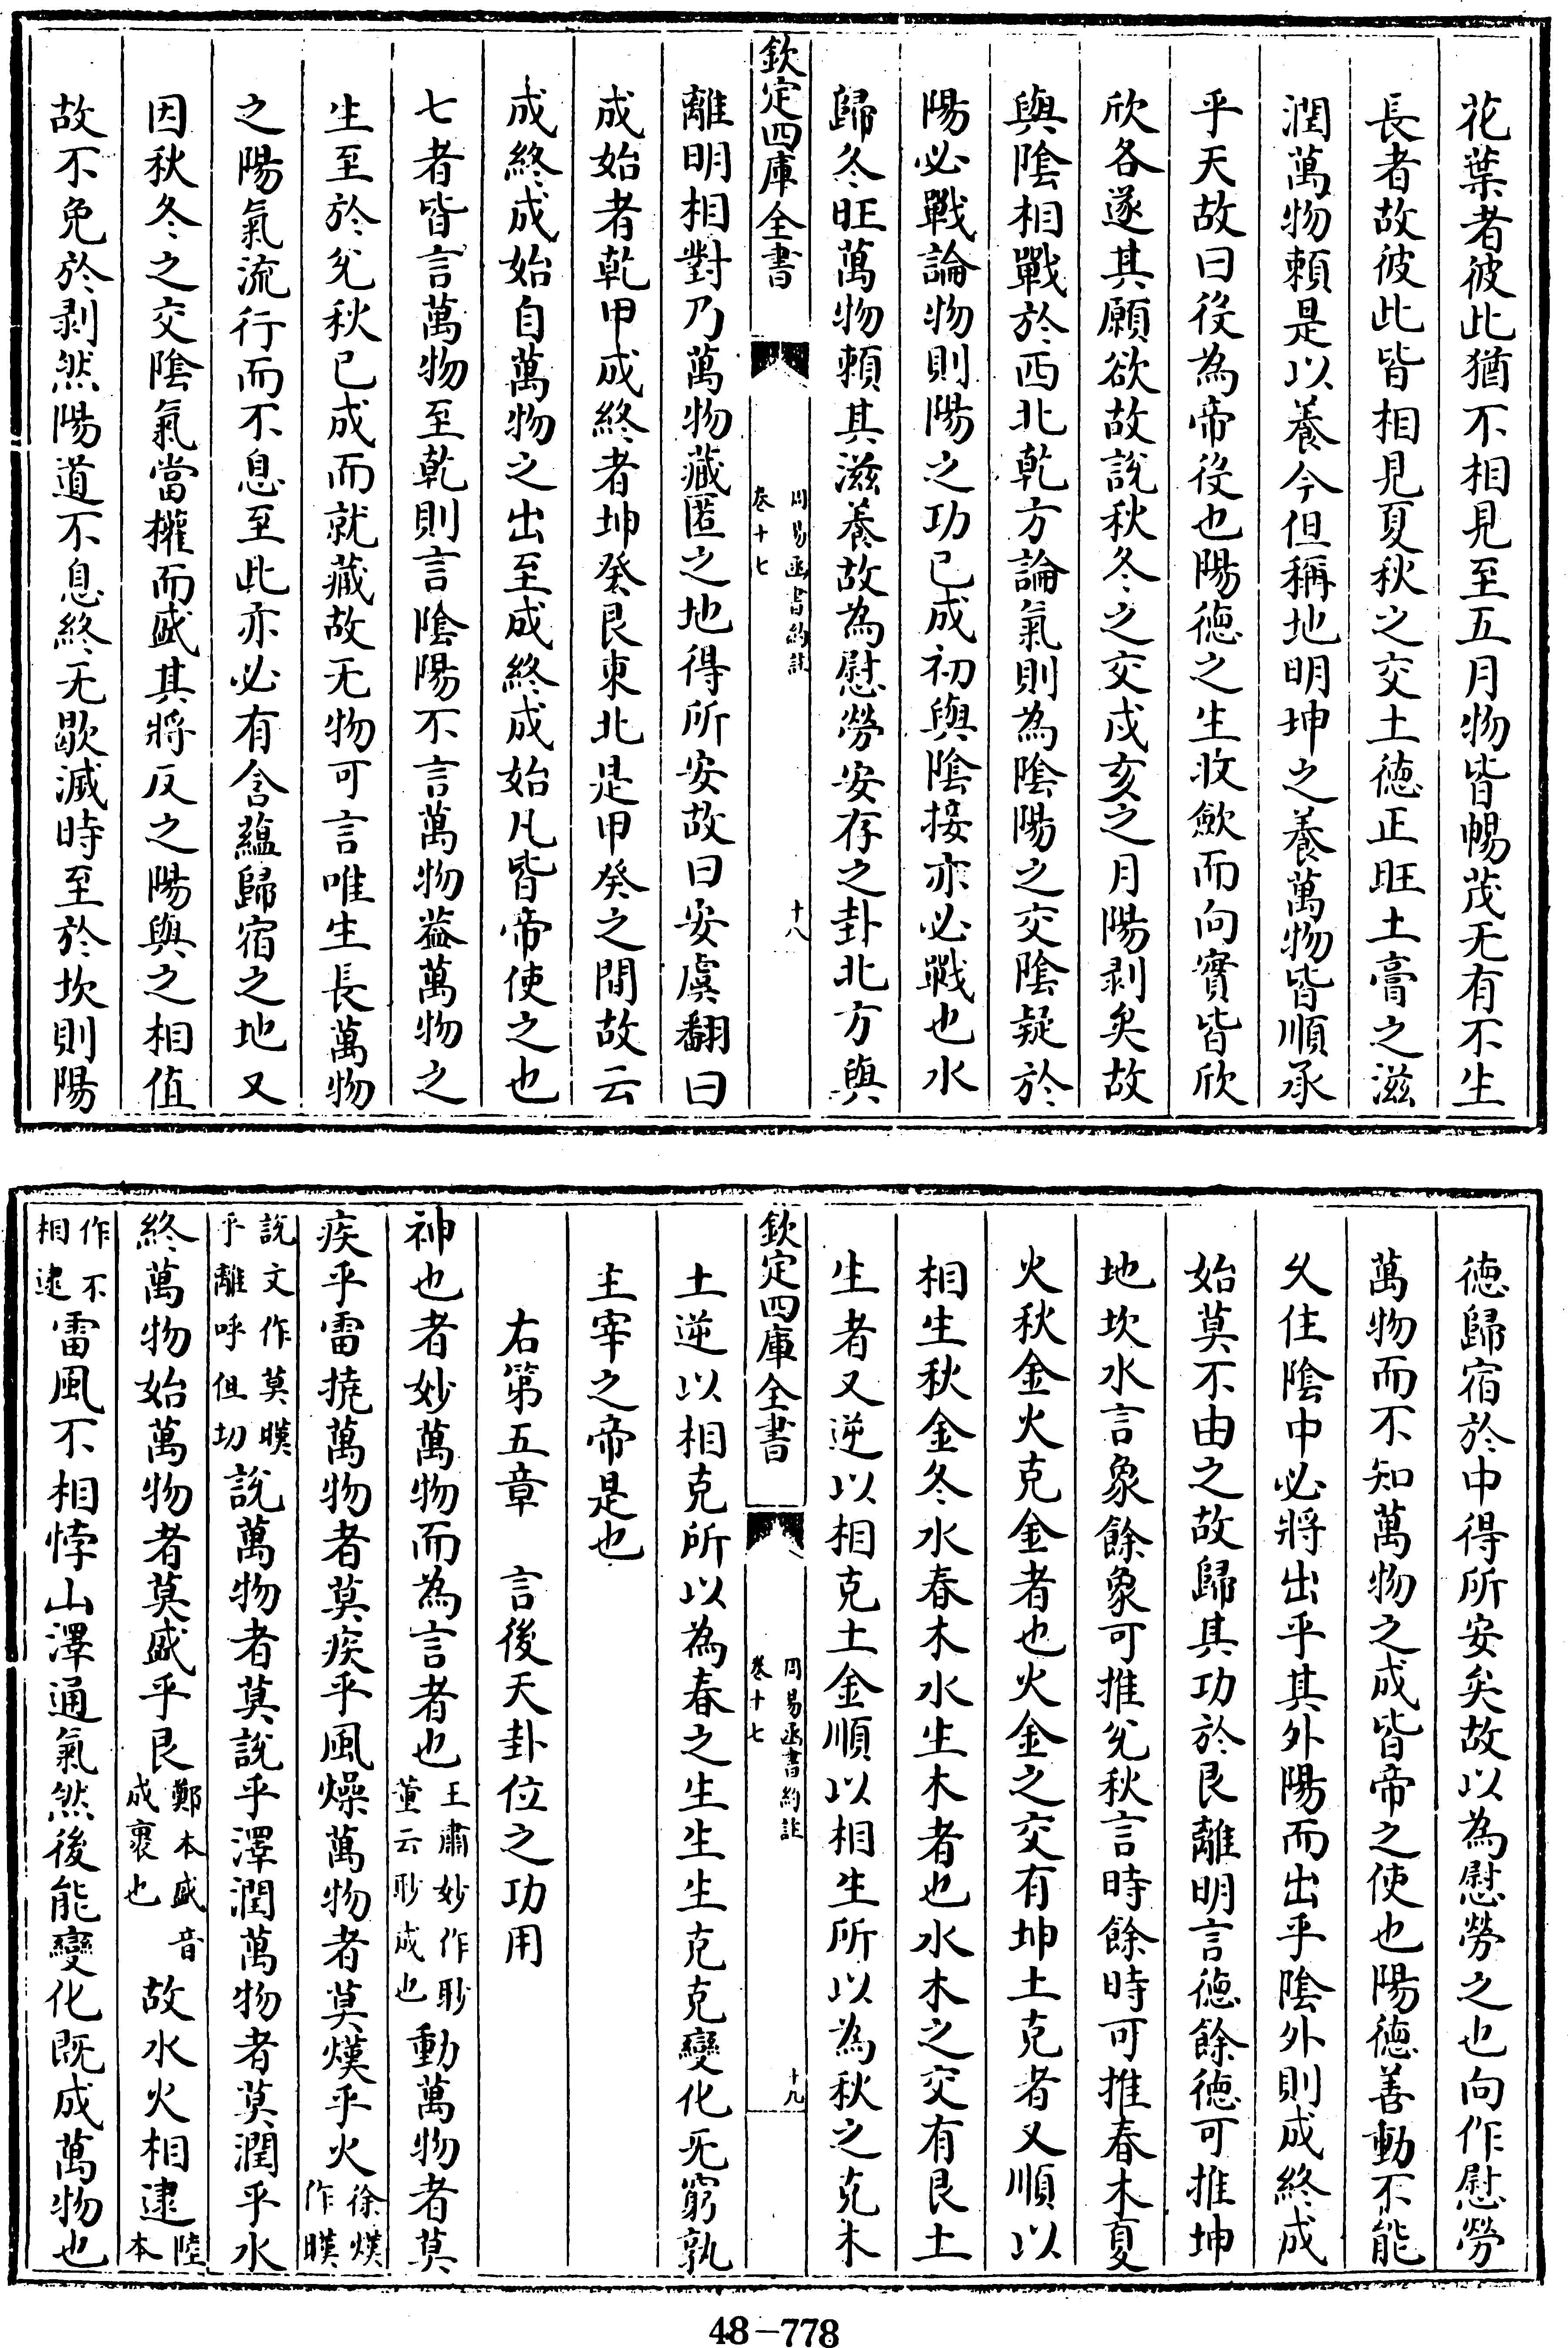 花葉者彼此猶不相見至五月物皆暢茂无有不生
長者故彼此皆相見夏秋之交土德正旺土膏之滋
潤萬物賴是以養今但稱地明坤之養萬物皆順承
乎天故曰役為帝役也陽德之生收斂而向實皆欣
欣各遂其願欲故說秋冬之交戍亥之月陽剥矣故
與陰相戰於西北乾方論氣則為陰陽之交陰疑於
陽必戰論物則陽之功已成初與陰接亦必戰也水
歸冬旺萬物賴其滋養故為慰勞安存之卦北方與
欽定四庫全書
周易函書約註
卷十七
十八
離明相對乃萬物藏匿之地得所安故曰安虞翻曰
成始者乾甲成終者坤癸艮東北是甲癸之間故云
成終成始自萬物之出至成終成始凡皆帝使之也
七者皆言萬物至乾則言陰陽不言萬物葢萬物之
生至於兊秋已成而就藏故无物可言唯生長萬物
之陽氣流行而不息至此亦必有含蘊歸宿之地又
因秋冬之交陰氣當權而盛其將反之陽與之相值
故不免於剥然陽道不息終无歇滅時至於坎則陽
德歸宿於中得所安矣故以為慰勞之也向作慰勞
萬物而不知萬物之成皆帝之使也陽德善動不能
乆住陰中必將出乎其外陽而出乎陰外則成終成
始莫不由之故歸其功於艮離明言德餘德可推坤
地坎水言象餘象可推兊秋言時餘時可推春木夏
火秋金火克金者也火金之交有坤土克者又順以
相生秋金冬水春木水生木者也水木之交有艮土
生者又逆以相克土金順以相生所以為秋之克木
欽定四庫全書
周易函書約註
卷十七
十九
土逆以相克所以為春之生生生克克變化无窮孰
主宰之帝是也
右第五章　言後天卦位之功用
神也者妙萬物而為言者也王肅妙作眇董云眇成也動萬物者莫
疾乎雷撓萬物者莫疾乎風燥萬物者莫熯乎火徐熯作暵
說文作莫暵乎離呼但切說萬物者莫說乎澤潤萬物者莫潤乎水
終萬物始萬物者莫盛乎艮鄭本盛音成裹也故水火相逮陸本
作不相逮雷風不相悖山澤通氣然後能變化既成萬物也
48-778